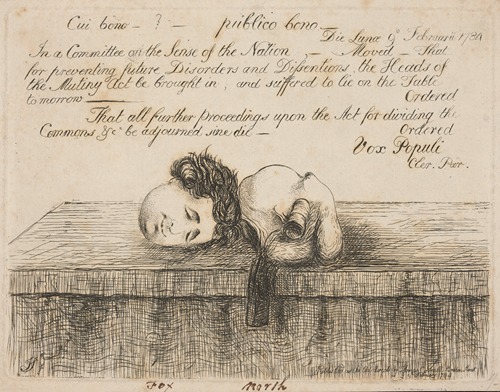 Cui bono — ? — publico bono —
Die Luna 9º Februarii 1784
In a Committee on the Sense of the Nation, — Moved — That
for preventing future Disorders and Dissentions, the Heads of
the Mutiny Act be brought in, and suffered to lie on the Table
tomorrow — Ordered
That all further Proceedings upon the Act for dividing the
Commons, &c. be adjourned sine die —
Ordered
Vox Populi
Cler. Par.
Fox North